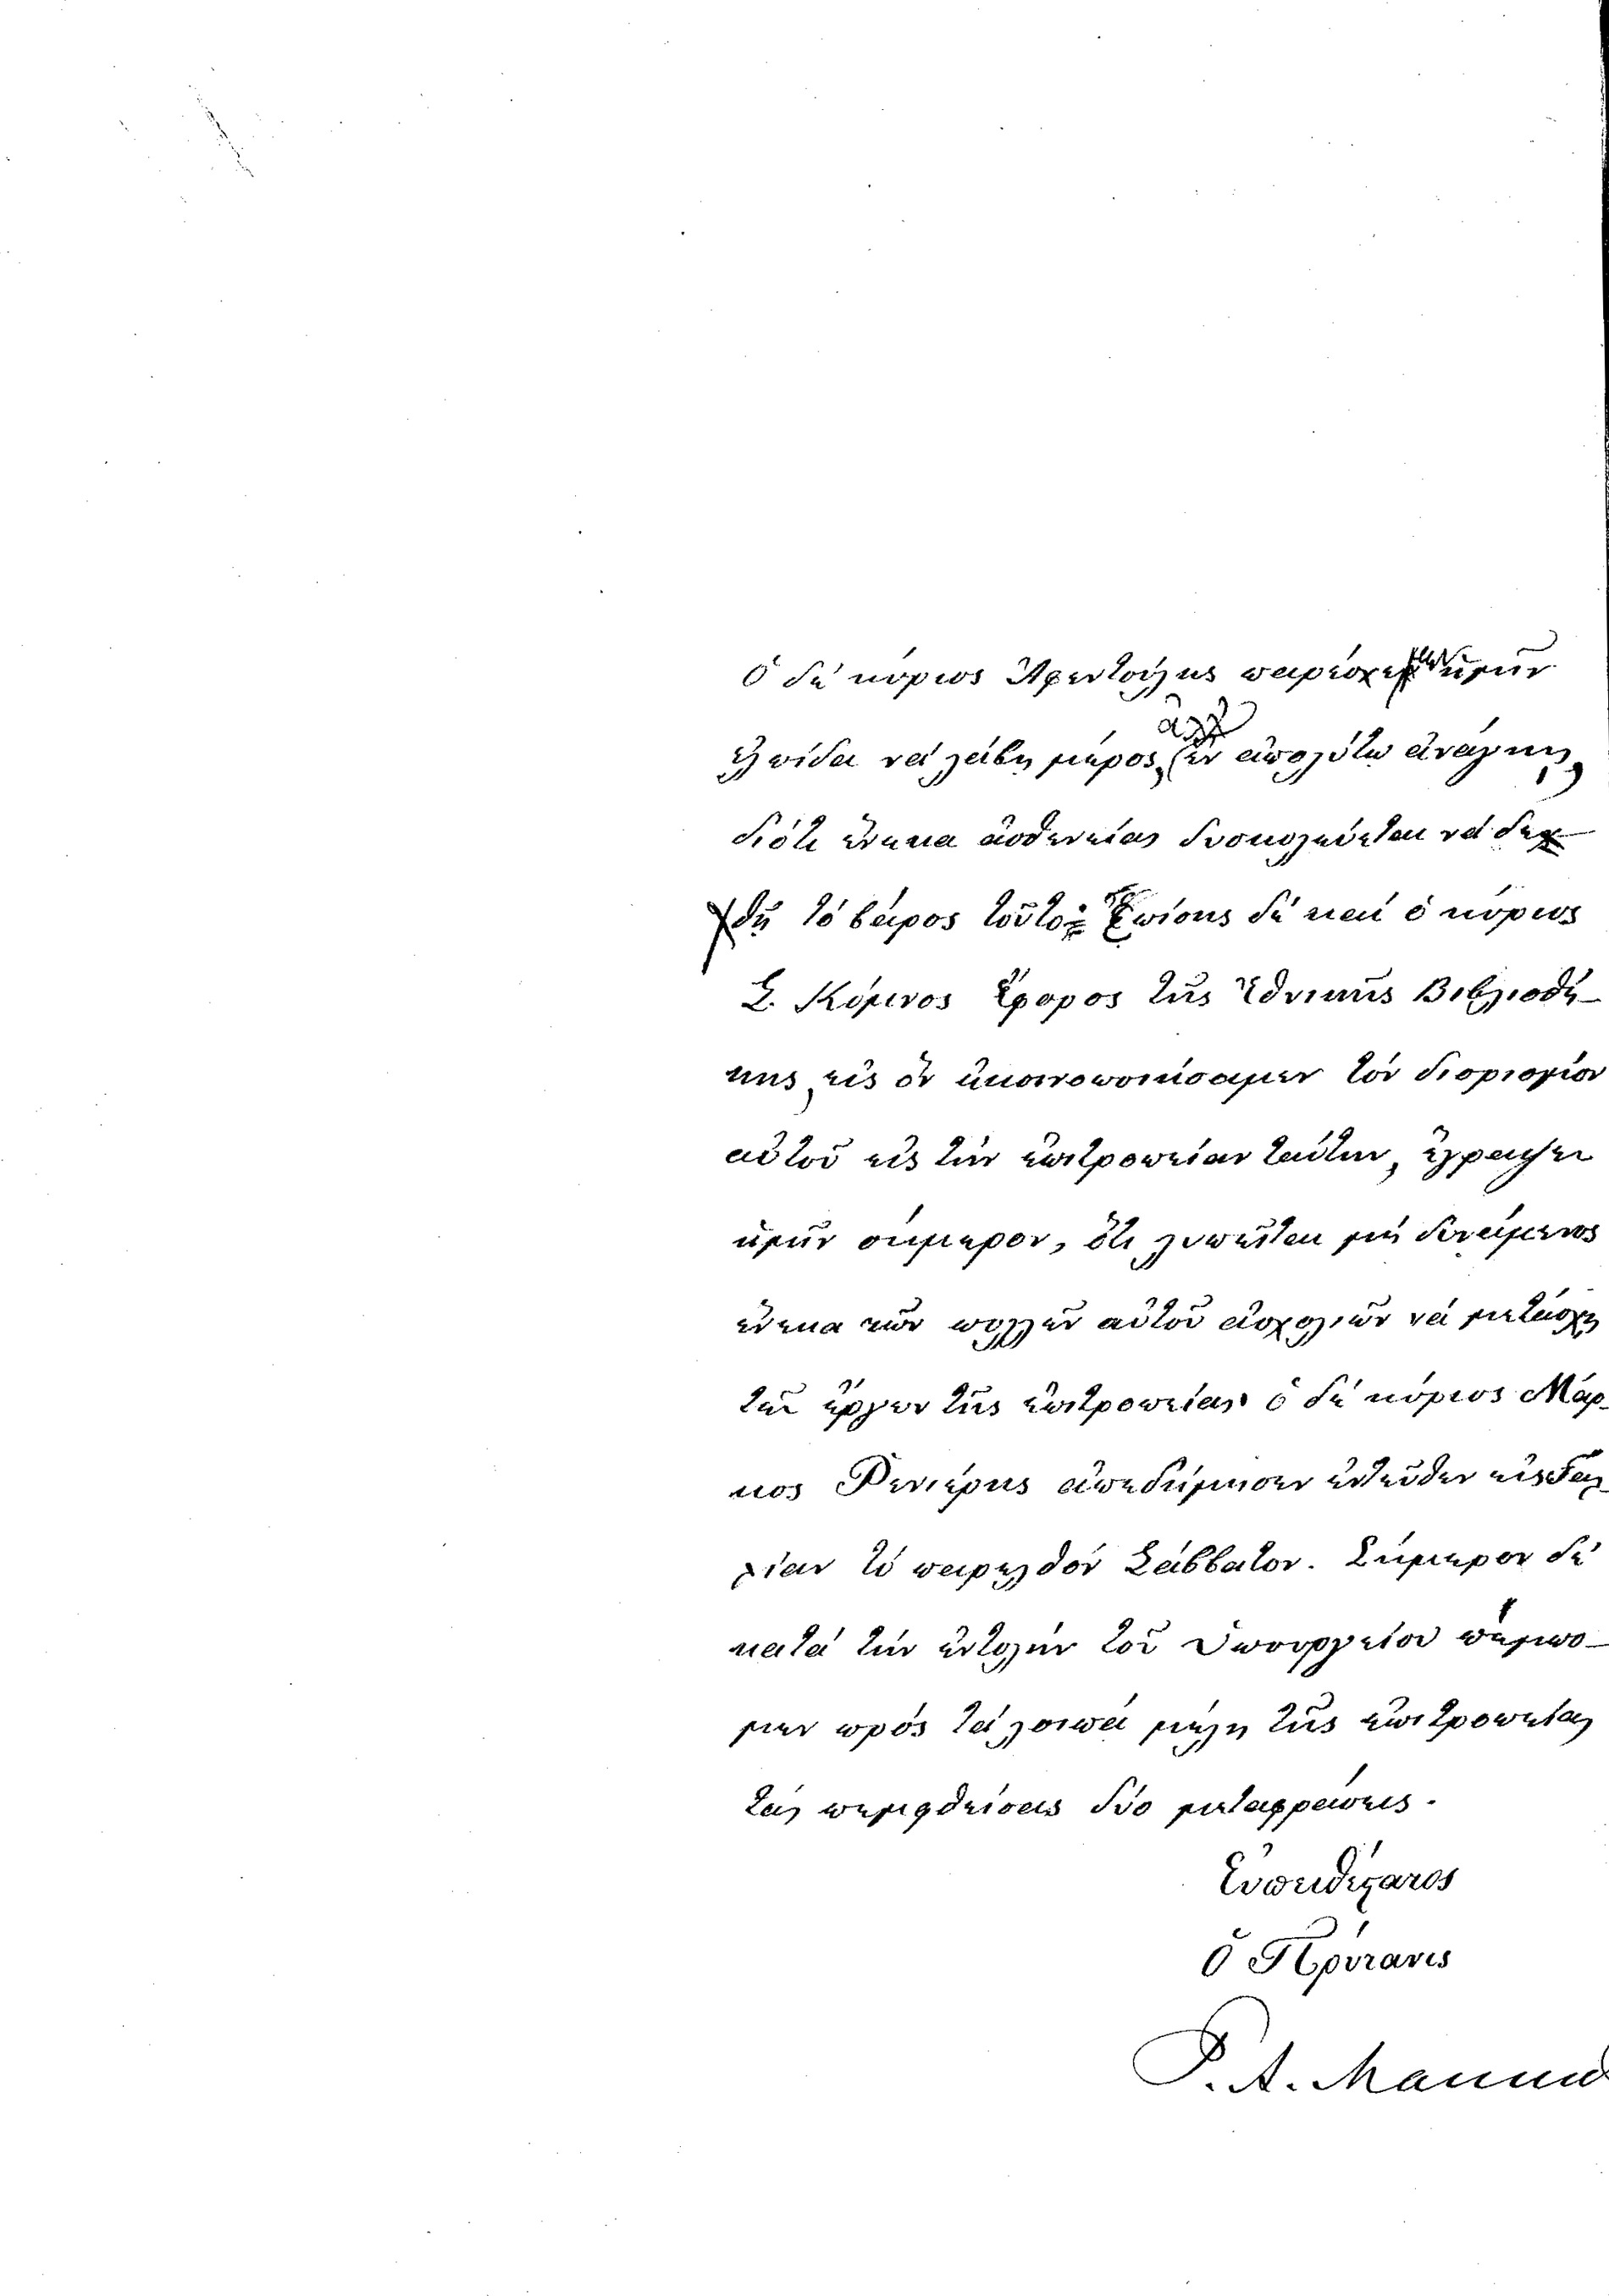 Ὁ δὲ κύριος Ἀριστοτέλης παρέσχεν μὲν ἡμῖν
ἐλπίδα νὰ λάβῃ μέρος, ἀλλ' ἐν ἀπολύτῳ ἀνάγκῃ,
διότι ἕνεκα ἀσθενείας δυσκολεύεται νὰ δεχ
θῇ τὸ βάρος τοῦτο· Ἐπίσης δὲ καὶ ὁ κύριος
Σ. Κόμνος Ἔφορος τῆς Ἐθνικῆς Βιβλιοθή-
κης, εἰς ὃν ἐκοινοποιήσαμεν τὸν διορισμὸν
αὐτοῦ εἰς τὴν ἐπιτροπείαν ταύτην, ἔγραψεν
ἡμῖν σήμερον, ὅτι λυπεῖται μὴ δυνάμενος
ἕνεκα τῶν πολλῶν αὐτοῦ ἀσχολιῶν νὰ μετάσχῃ
τῶν ἔργων τῆς ἐπιτροπείας· ὁ δὲ κύριος Μάρ-
κος Ρενιέρης ἀπεδήμησεν ἐντεῦθεν εἰς Γαλ-
λίαν τὸ παρελθὸν Σάββατον. Σήμερον δὲ
κατὰ τὴν ἐντολὴν τοῦ Ὑπουργείου πέμπο-
μεν πρὸς τὰ λοιπὰ μέλη τῆς ἐπιτροπείας
τὰς πεμφθείσας δύο μεταφράσεις.
Εὐπειθέστατος
Ὁ Πρύτανις